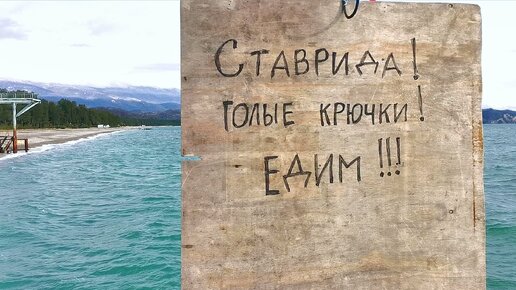 Ставрида!
голые крючки!
Едим!!!